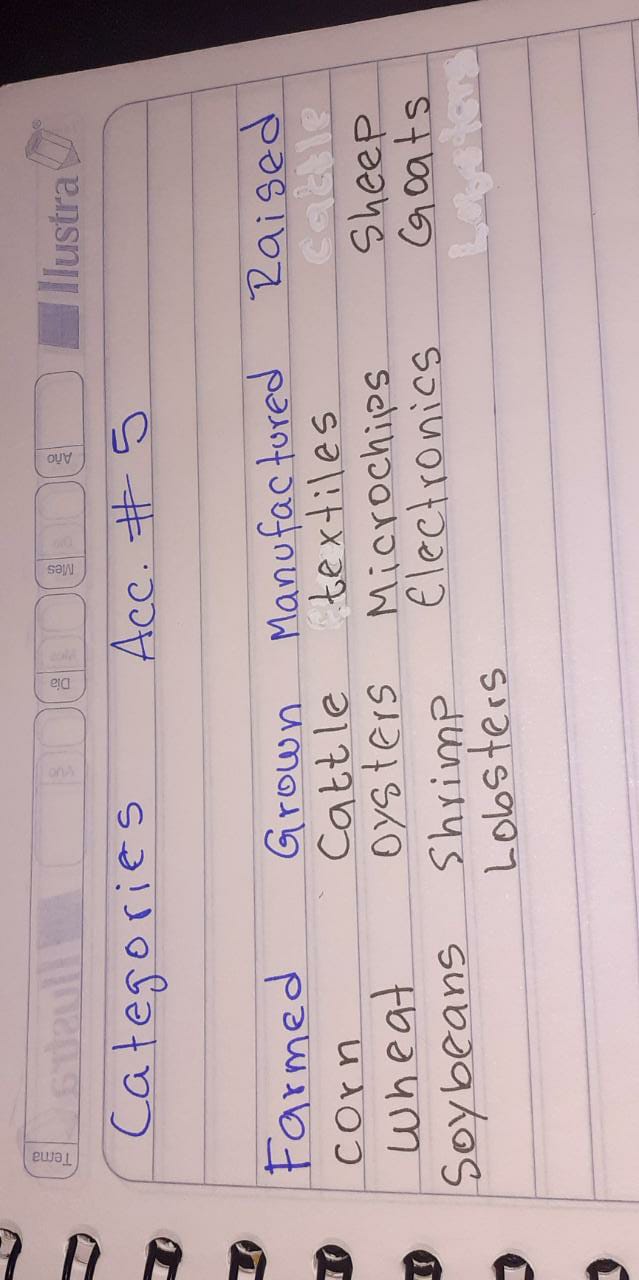 Tema Día Mes Año Ilustra
Categories Acc. # 5
Farmed Grown Manufactured Raised
corn Cattle textiles cattle
Wheat Oysters Microchips Sheep
Soybeans Shrimp Electronics Goats
Lobsters